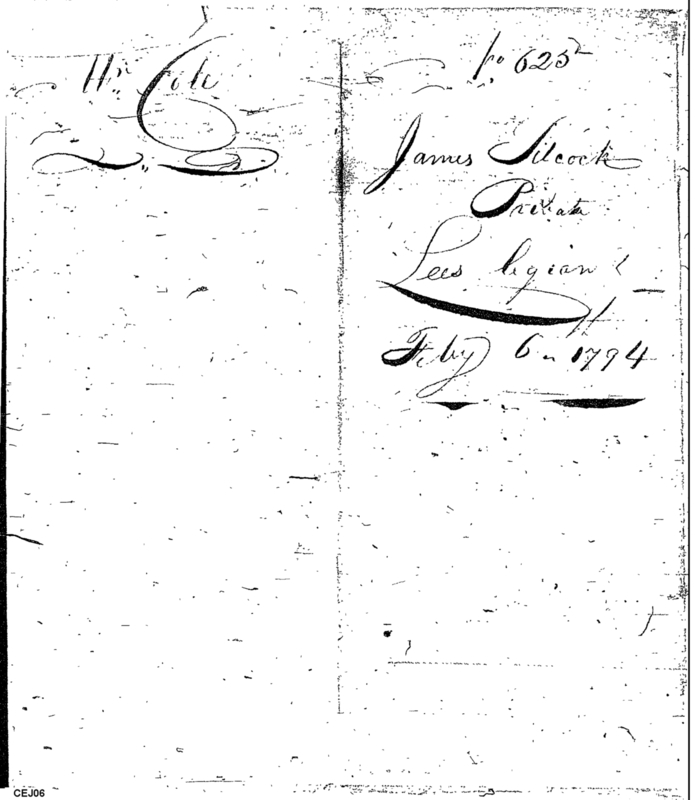 Wm Cole
No 625
James Silcock
Private
Lees legion
Feby 6th 1794
CEJ06